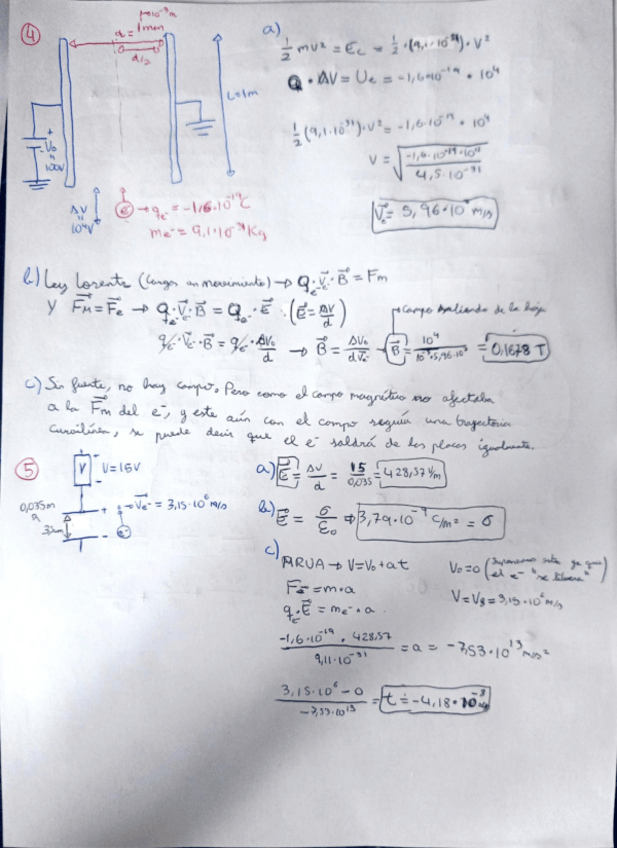 4
10⁻³m
a = 1mm
d/2
L=1m
+
V₀
=
100V
ΔV
=
10⁴V
e⁻ → qe⁻ = -1,6·10⁻¹⁹C
me⁻ = 9,1·10⁻³¹Kg
a)
½ mv² = Ec = ½·(9,1·10⁻³¹)·V²
Q·ΔV = Ue = -1,6·10⁻¹⁹·10⁴
½(9,1·10⁻³¹)·V² = -1,6·10⁻¹⁹·10⁴
V = √(-1,6·10⁻¹⁹·10⁴ / 4,5·10⁻³¹)
Ve = 5,96·10⁷ m/s
b) Ley Lorentz (cargas en movimiento) → Qe·Ve·B = Fm
Y Fm = Fe → Qe·Ve·B = Qe·E (E = ΔV/d)
→ Campo saliendo de la hoja
qe·Ve·B = qe·ΔV₀/d → B = ΔV₀/dVe → B = 10⁴/10⁻³·5,96·10⁷ = 0,1678 T
c) Sin fuente, no hay campo. Pero como el campo magnético no afectaba
a la Fm del e⁻, y este aún con el campo seguía una trayectoria
curvilínea, se puede decir que el e⁻ saldrá de las placas igualmente.
5
V
+
-
V=15V
0,035m
+
→ Ve⁻ = 3,15·10⁶ m/s
e⁻
-
a) E = ΔV/d = 15/0,035 = 428,57 V/m
b) E = σ/ε₀ → 3,79·10⁻⁹ C/m² = σ
c)
MRUA → V=V₀+at
V₀=0 (Suponemos este ya que
el e⁻ "se libera")
Fe = m·a
V=VB = 3,15·10⁶ m/s
qe·E = me⁻·a
-1,6·10⁻¹⁹·428,57 / 9,11·10⁻³¹ = a = -7,53·10¹³ m/s²
3,15·10⁶ - 0 / -7,53·10¹³ = t = -4,18·10⁻⁸